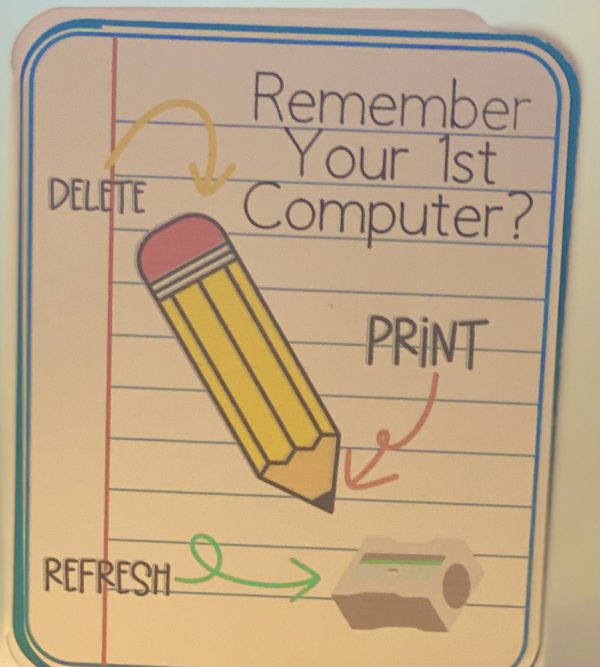 Remember
Your 1st
Computer?
DELETE
PRiNT
REFRESH